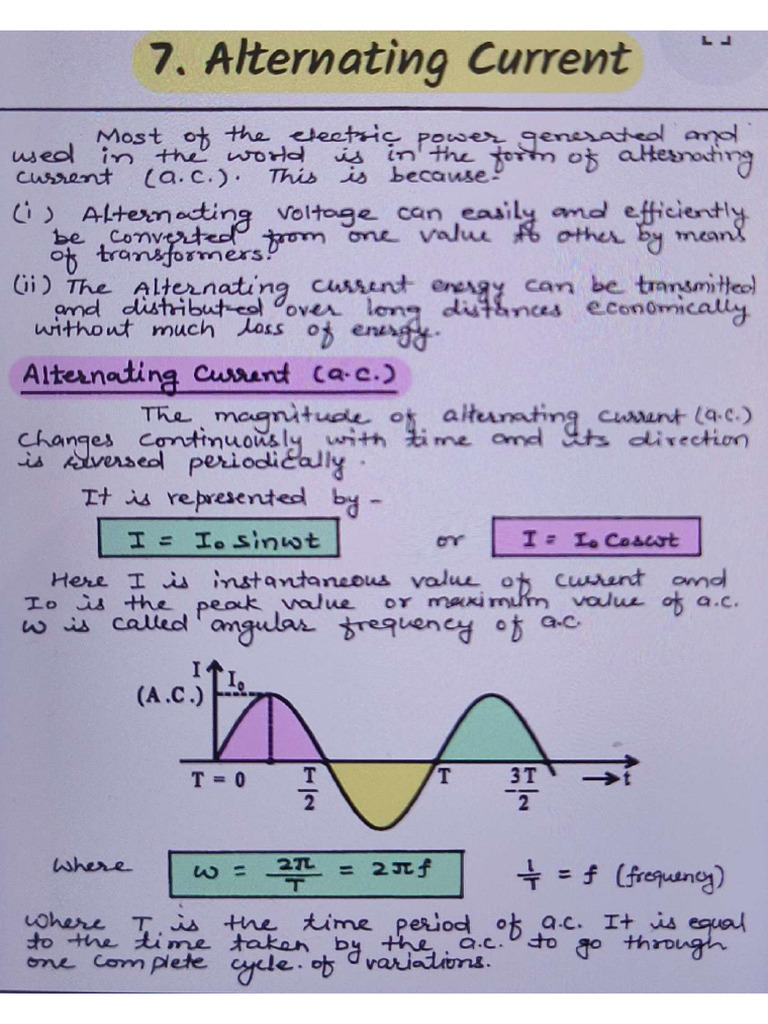 7. Alternating Current
Most of the electric power generated and
used in the world is in the form of alternating
current (a.c.). This is because-
(i) Alternating voltage can easily and efficiently
be converted from one value to other by means
of transformers.
(ii) The Alternating current energy can be transmitted
and distributed over long distances economically
without much loss of energy.
Alternating Current (a.c.)
The magnitude of alternating current (a.c.)
changes continuously with time and its direction
is reversed periodically.
It is represented by -
I = I₀ sinωt or I = I₀ Cosωt
Here I is instantaneous value of current and
I₀ is the peak value or maximum value of a.c.
ω is called angular frequency of a.c.
I
I₀
(A.C.)
T = 0 T/2 T 3T/2 → t
where ω = 2π/T = 2πf 1/T = f (frequency)
where T is the time period of a.c. It is equal
to the time taken by the a.c. to go through
one complete cycle of variations.